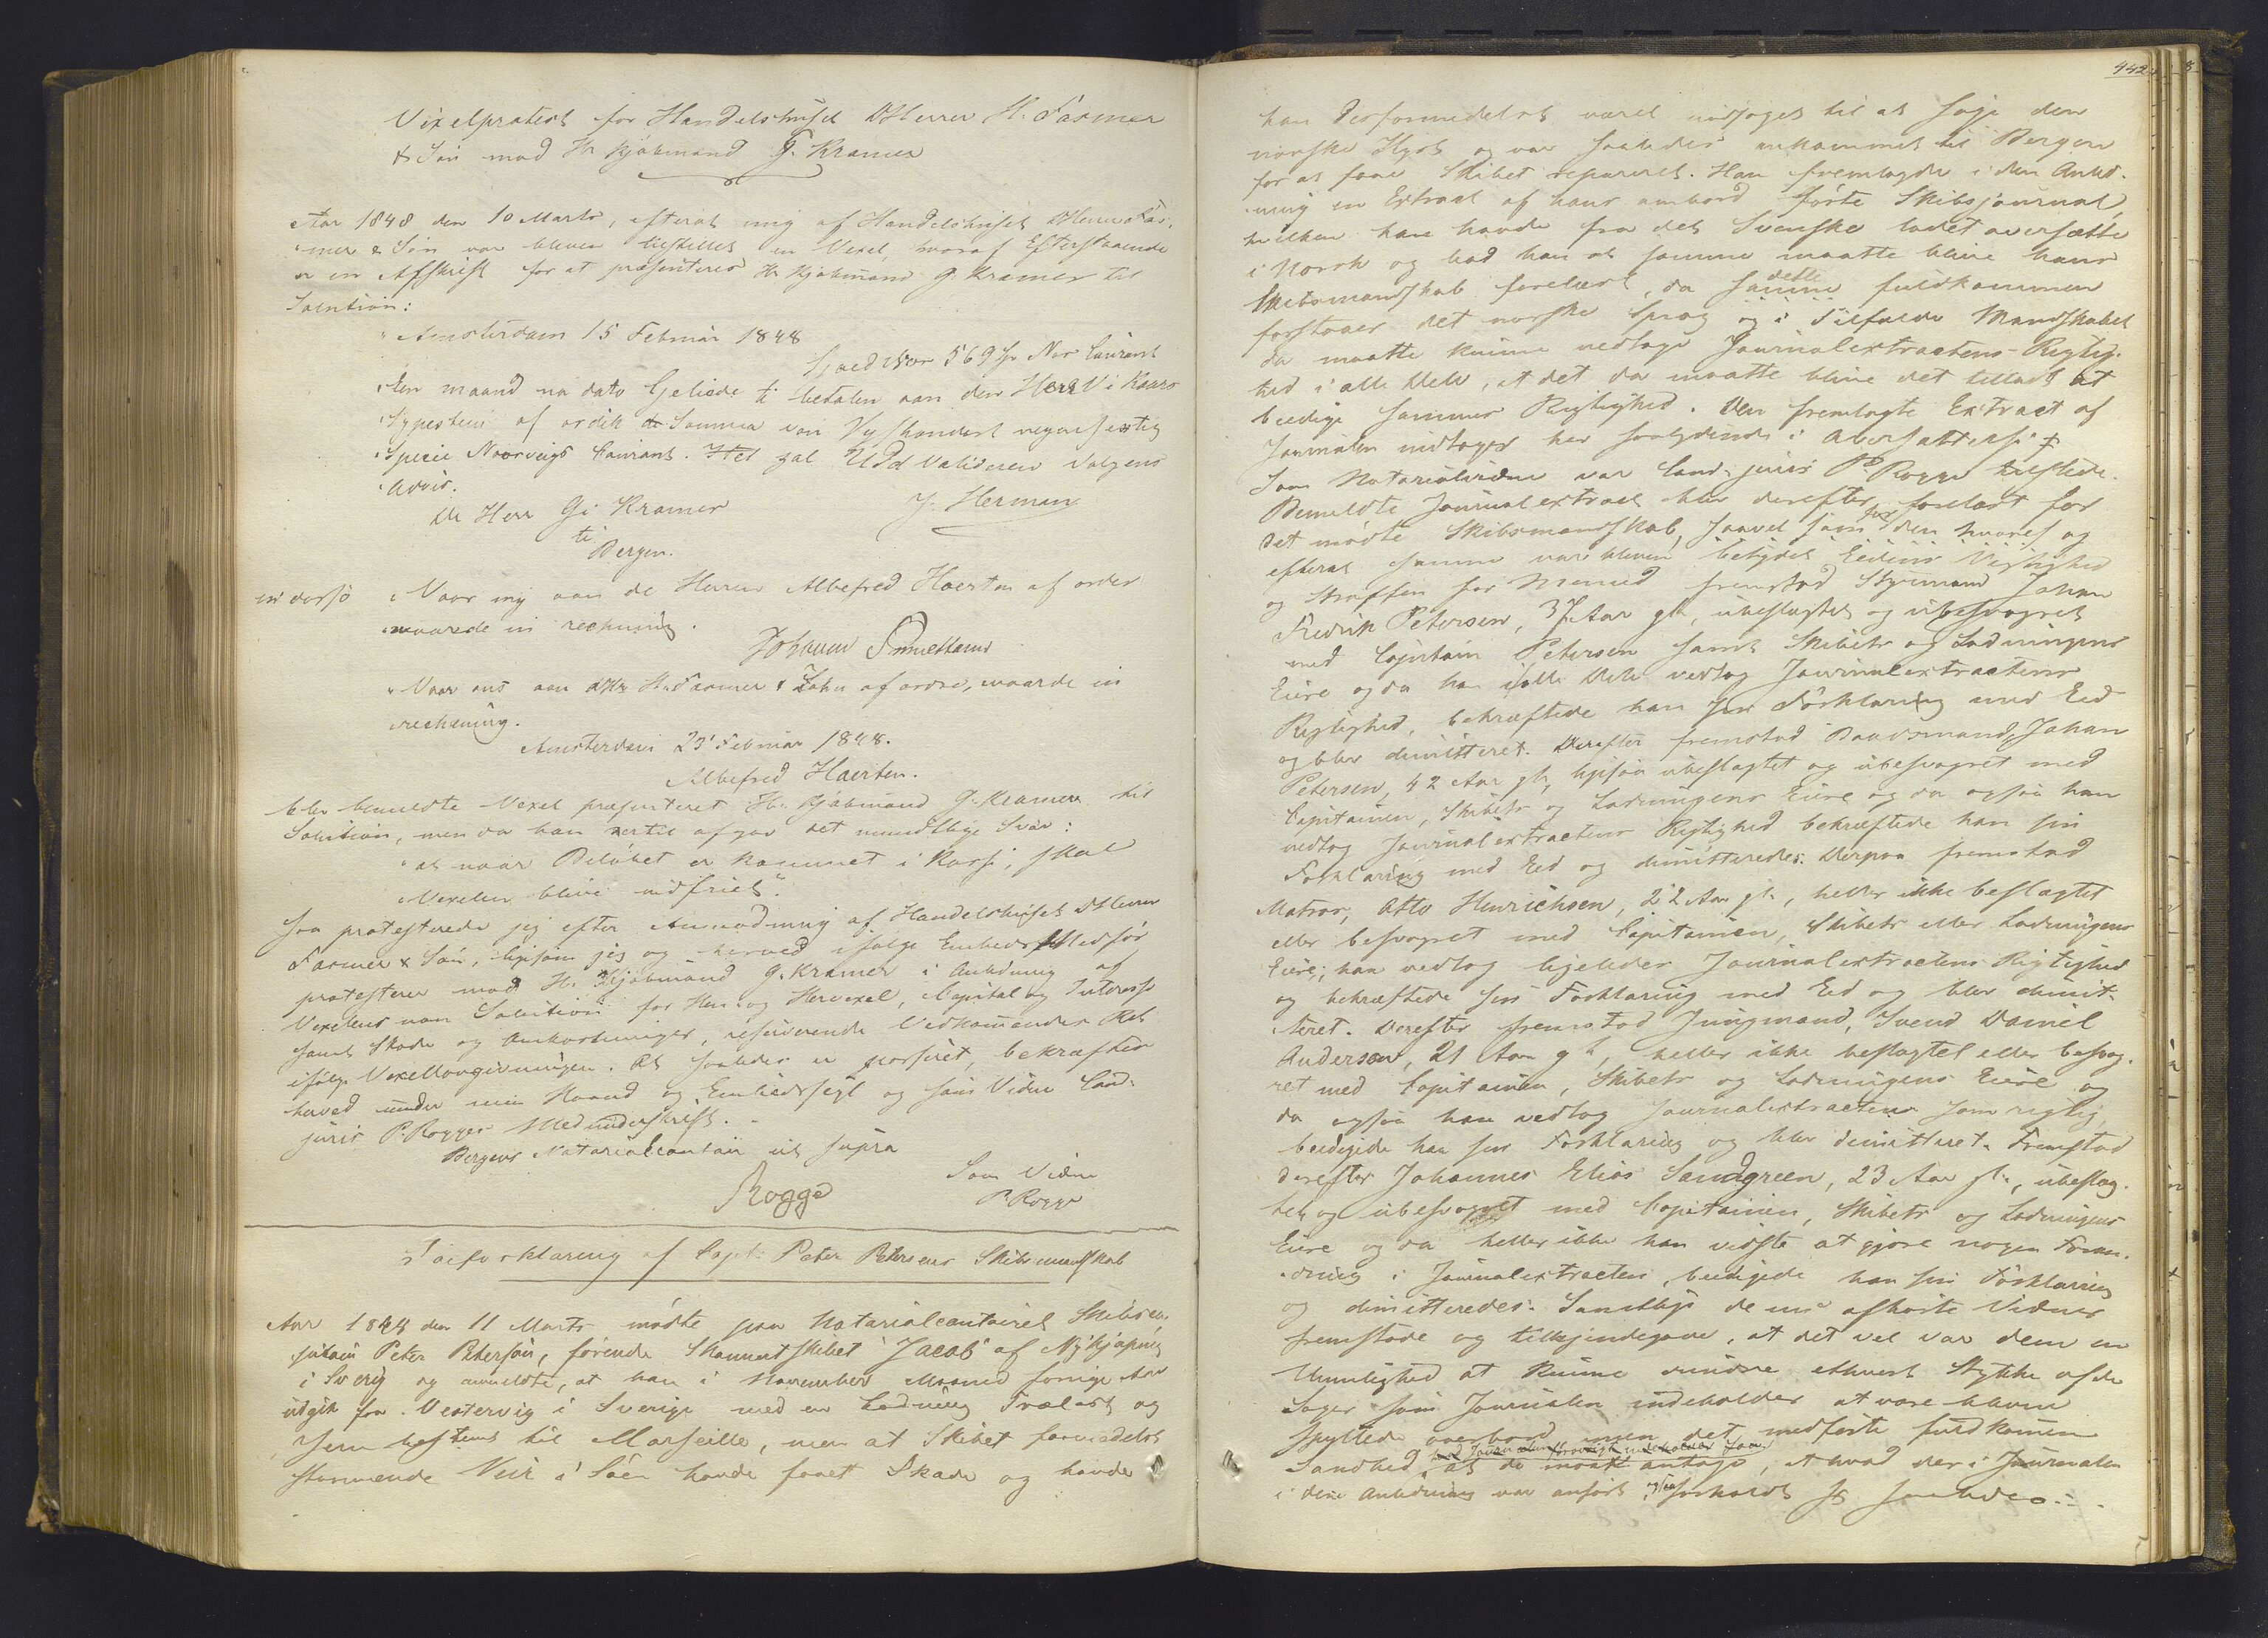 Vixelprotest for Handelshuset DHerrer H. Fasmer
& Søn mod Hr Kjøbmand G. Kramer
Aar 1848 den 10 Marts, efterat mig af Handelshuset DHerrer Fas-
mer & Søn var bleven tilstillet en Vexel, hvoraf Efterstaaende
er en Afskrift for at præsenteres Hr Kjøbmand G. Kramer til
Solution:
"Amsterdam 15 Februar 1848
Goed voor 569 Sp Nor Courant
"Een maand na dato Geliede te betalen aan den Heer
of ordre de Somma van Vyfhondert negen sestig
"Specie Noorveigs Courant. Het zal UEd valideren volgens
"advis.
De Heer G. Kramer J. Herman
te
Bergen.
in dorso "Voor mij aan de Heeren Albefred Haerten af order
"waarde in rechnung.
Johann
"Voor ons aan DHr H. Fasmer & Zohn af order, waarde in
"rechnung.
Amsterdam 23 Februar 1848.
Albefred Haerten.
blev bemeldte Vexel præsenteret Hr. Kjøbmand G. Kramer til
Solution, men da han dertil afgav det mundtlige Svar:
"at naar Beløbet er kommet i Kasse, skal
"Vexelen blive indfriet".
saa protesterede jeg efter Anmodning af Handelshuset DHerrer
Fasmer & Søn, ligesom jeg og herved ifølge Embeds Medfør
protesterer mod Hr. Kjøbmand G. Kramer i Anledning af
Vexelens non Solution for Hen- og Hervexel, Capital og Interesse
samt Skade og Omkostninger, reserverende Vedkommendes Ret
ifølge Vexellovgivningen. At saaledes er passeret, bekræftes
herved under min Haand og Embedsseigl og som Vidne Cand:
juris P. Rogges Medunderskrift.
Bergens Notarialcontoir ut supra
Rogge Som Vidne
P. Rogge
Søeforklaring af Capt: Peter Petersens Skibsmandskab
Aar 1848 den 11 Marts mødte paa Notarialcontoiret Skibsca-
pitain Peter Petersen, førende Skonnertskibet "Jacob" af Nykjøping
i Sverig og anmeldte, at han i November Maaned forrige Aar
udgik fra Vestervig i Sverige med en Ladning Trælast og
Jern bestemt til Marseille, men at Skibet formedelst
stormende Veir i Søen havde faaet Skade og havde
442
han desformedelst været nødsaget til at søge den
norske Kyst og var saaledes ankommet til Bergen
for at faae Skibet repareret. Han fremlagde i den Anled-
ning en Extract af hans ombord førte Skibsjournal,
hvilken han havde fra det Svenske ladet oversætte
i Norsk og bad han at samme maatte blive hans
Skibsmandskab forelæst, da samme dette fuldkommen
forstaaer det norske Sprog og i Tilfælde Mandskabet
da maatte kunne vedtage Journalextractens Rigtig-
hed i alle Dele, at det da maatte blive det tilladt at
beedige sammes Rigtighed. Den fremlagte Extract af
Journalen indtages her saalydende i Oversættelse ⨍
Som Notarialvidne var Cand: juris P. Rogge tilstede.
Bemeldte Journalextract blev derefter forelæst for
det mødte Skibsmandskab, saavel som for den hvoref og
efterat samme var bleven betydet Eedens Vigtighed
og Straffen for Meened fremstod Styrmand Johan
Fredrik Petersen, 37 Aar gl, ubeslægtet og ubesvogret
med Capitain Petersen samt Skibets og Ladningens
Eiere og da han i alle Dele vedtog Journalextractens
Rigtighed, bekræftede han sin Forklaring med Eed
og blev dimitteret. Derefter fremstod Baadsmand, Johan
Petersen, 42 Aar gl, ligesaa ubeslægtet og ubesvogret med
Capitainen, Skibets og Ladningens Eiere og da ogsaa han
vedtog Journalextractens Rigtighed bekræftede han sin
Forklaring med Eed og dimitteredes. Derpaa fremstod
Matros, Otto Henrichsen, 22 Aar gl., heller ikke beslægtet
eller besvogret med Capitainen, Skibets eller Ladningens
Eiere; han vedtog ligeledes Journalextractens Rigtighed
og bekræftede sin Forklaring med Eed og blev dimit-
teret. Derefter fremstod Jungmand, Svend Daniel
Anderson, 21 Aar gl, heller ikke beslægtet eller besvog-
ret med Capitainen, Skibets og Ladningens Eiere og
da ogsaa han vedtog Journalextracten som rigtig,
beedigede han sin Forklaring og blev dimitteret. Fremstod
derefter Johannes Elias Sandgreen, 23 Aar gl., ubeslæg-
tet og ubesvogret med Capitainen, Skibets og Ladningens
Eiere og da heller ikke han vidste at gjøre nogen Foran-
dring i Journalextracten, beedigede han sin Forklaring
og dimitteredes. Samtlige de nu afhørte Vidner
fremstode og tilkjendegave, at det vel var dem en
Umulighed at kunne erindre ethvert Stykke af de
Sager som Journalen indeholder at være bleven
skyllede overbord men det medførte fuldkommen
Sandhed, at de maatte antage, at hvad der i Journalen
i den Anledning var anført, ogsaa forholdt sig saaledes.